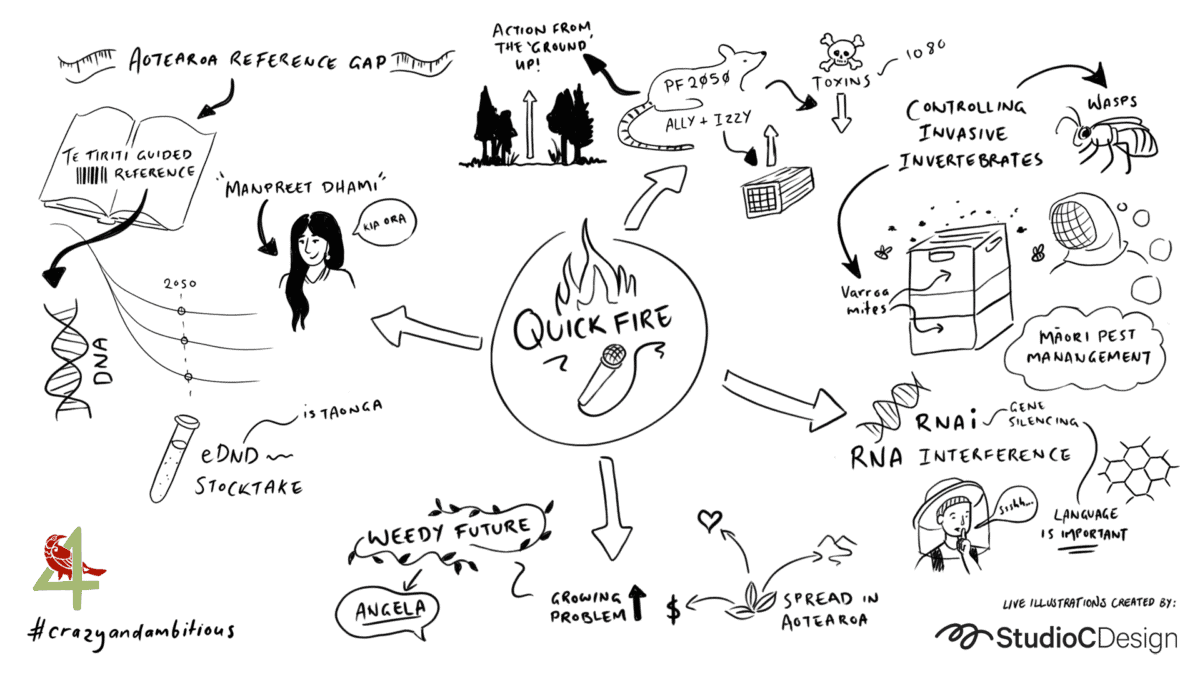 AOTEAROA REFERENCE GAP
TE TIRITI GUIDED
REFERENCE
"MANPREET DHAMI"
KIA ORA
2050
DNA
IS TAONGA
eDND
STOCKTAKE
#crazyandambitious
4
ACTION FROM
THE 'GROUND'
UP!
PF 2050
ALLY + IZZY
TOXINS
1080
CONTROLLING
INVASIVE
INVERTEBRATES
WASPS
Varroa
mites
MĀORI PEST
MANANGEMENT
QUICK FIRE
RNAi
GENE
SILENCING
RNA INTERFERENCE
Ssshh...
LANGUAGE
IS IMPORTANT
WEEDY FUTURE
ANGELA
GROWING
PROBLEM
$
SPREAD IN
AOTEAROA
LIVE ILLUSTRATIONS CREATED BY:
StudioCDesign